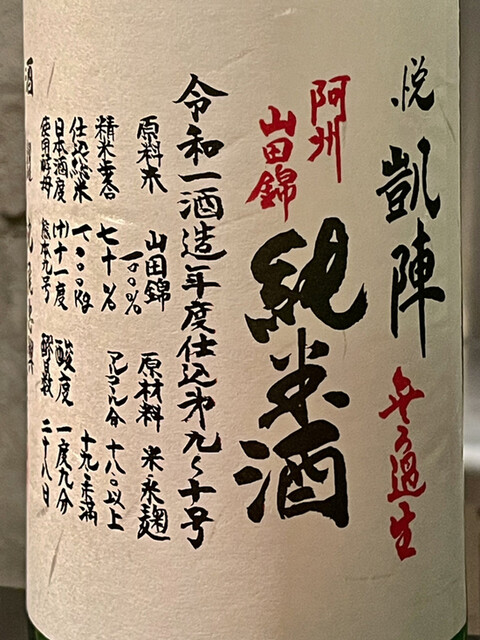 悦 凱陣 無ろ過生
阿州
山田錦
純米酒
令和一酒造年度仕込第九〜十号
原料米 山田錦
一〇〇% 原材料 米米麹
精米歩合 七十% アルコール分 十八〇以上
十九〇未満
仕込総米 一〇〇〇kg
日本酒度 (+)十一度 酸度 一度九分
使用酵母 熊本九号 醪日数 二十八日
酒